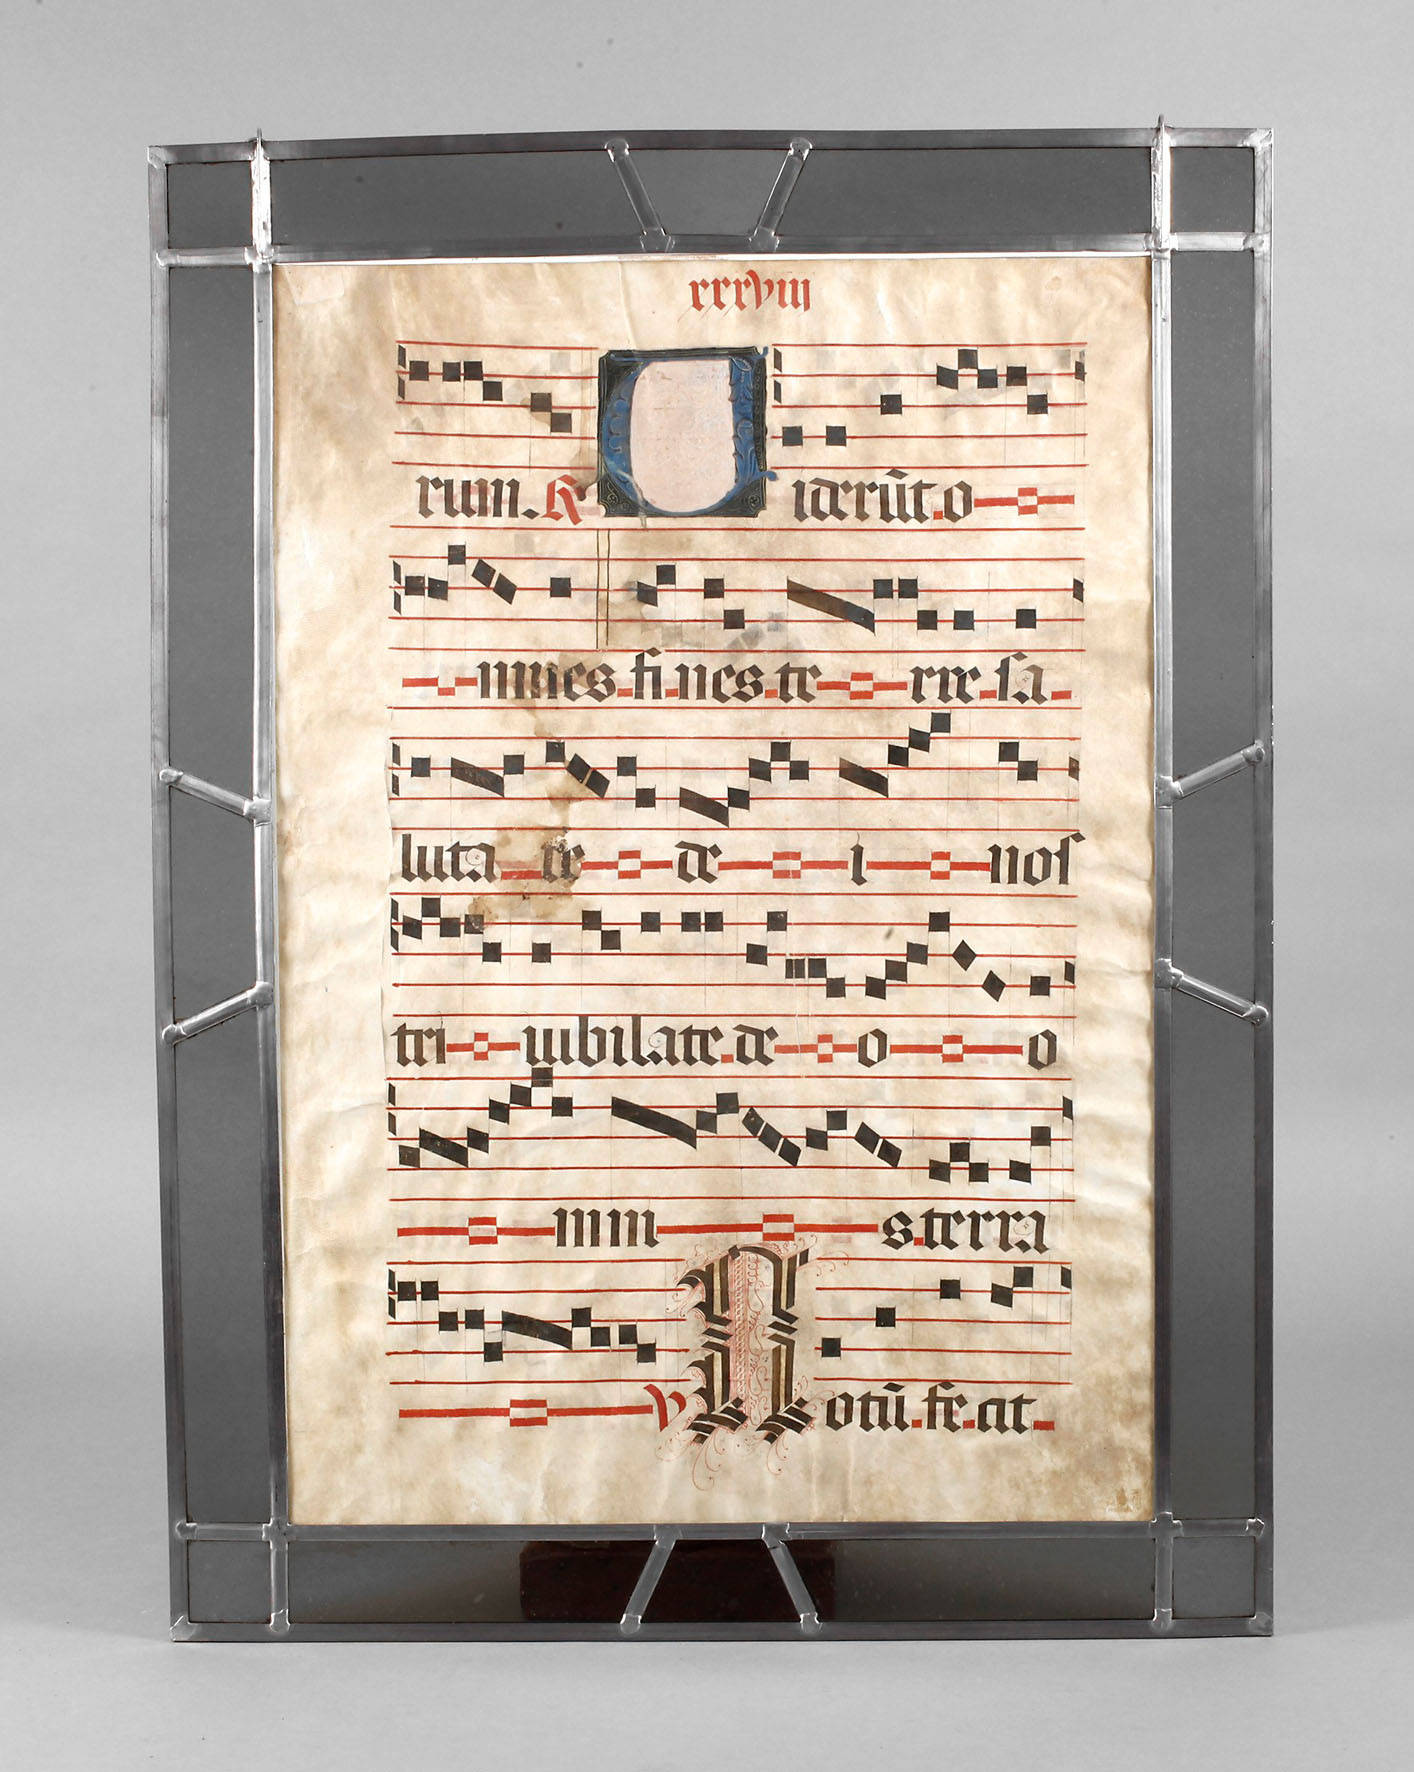 xxxviii
rum. R Viderūt o
mnes fines te rre sa
luta re de i nos
tri iubilate de o o
mni s terra
V Notū fe cit